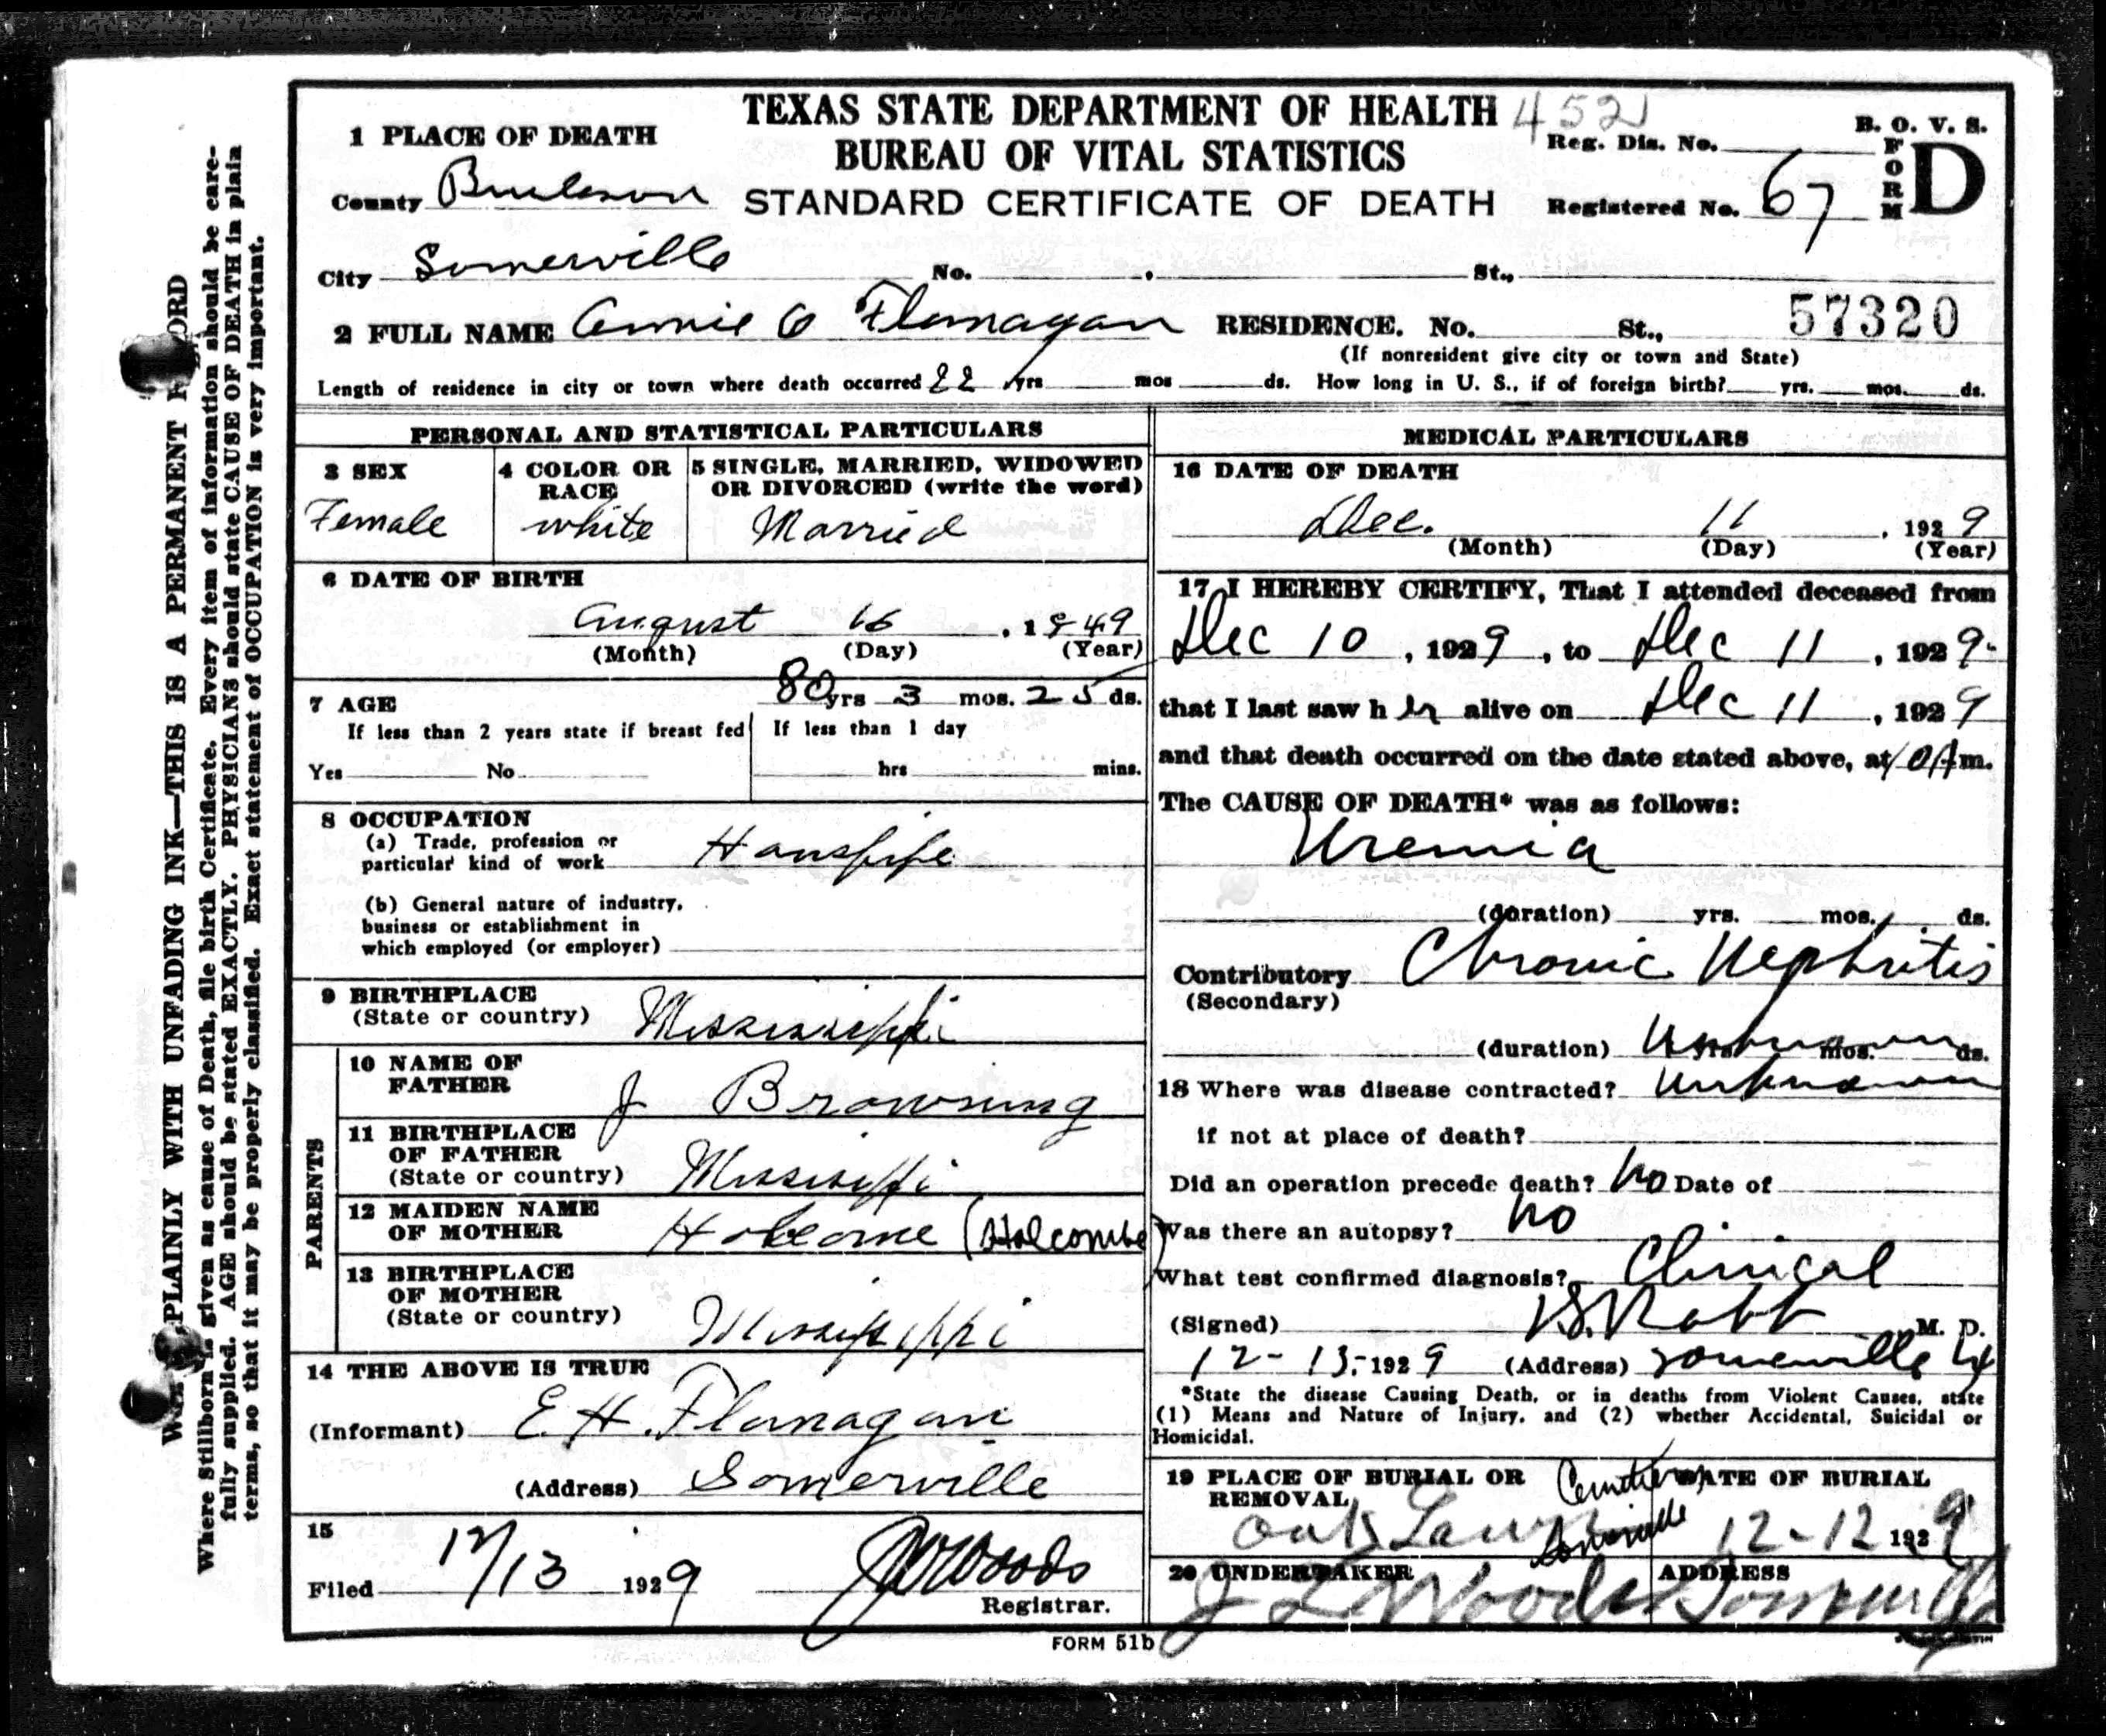 TEXAS STATE DEPARTMENT OF HEALTH
BUREAU OF VITAL STATISTICS
STANDARD CERTIFICATE OF DEATH
452
Reg. Dis. No.
Registered No. 67
B. O. V. S.
FORM D
1 PLACE OF DEATH
County Burleson
City Somerville No. St.,
2 FULL NAME Annie O Flanagan RESIDENCE. No. St., 57320
(If nonresident give city or town and State)
Length of residence in city or town where death occurred 22 yrs mos ds. How long in U. S., if of foreign birth? yrs. mos. ds.
PERSONAL AND STATISTICAL PARTICULARS
3 SEX
Female
4 COLOR OR RACE
white
5 SINGLE, MARRIED, WIDOWED
OR DIVORCED (write the word)
Married
6 DATE OF BIRTH
August 16 , 1849
(Month) (Day) (Year)
7 AGE 80 yrs 3 mos. 25 ds.
If less than 2 years state if breast fed
Yes No
If less than 1 day
hrs mins.
8 OCCUPATION
(a) Trade, profession or
particular kind of work Housfife
(b) General nature of industry,
business or establishment in
which employed (or employer)
9 BIRTHPLACE
(State or country) Mississippi
PARENTS
10 NAME OF
FATHER J Browning
11 BIRTHPLACE
OF FATHER
(State or country) Mississippi
12 MAIDEN NAME
OF MOTHER (Holcombe)
13 BIRTHPLACE
OF MOTHER
(State or country) Mississippi
14 THE ABOVE IS TRUE
(Informant) E. H. Flanagan
(Address) Somerville
15
Filed 12/13 1929
J Woods
Registrar.
MEDICAL PARTICULARS
16 DATE OF DEATH
Dec. 11 , 1929
(Month) (Day) (Year)
17 I HEREBY CERTIFY, That I attended deceased from
Dec 10 , 1929 , to Dec 11 , 1929.
that I last saw h er alive on Dec 11 , 1929
and that death occurred on the date stated above, at 10 A m.
The CAUSE OF DEATH* was as follows:
Uremia
(duration) yrs. mos. 1 ds.
Contributory Chronic Nephritis
(Secondary)
(duration) Unknown yrs. mos. ds.
18 Where was disease contracted? Unknown
if not at place of death?
Did an operation precede death? No Date of
Was there an autopsy? No
What test confirmed diagnosis? Clinical
(Signed) Rabb M. D.
12-13,-1929 (Address) Somerville Tx
*State the disease Causing Death, or in deaths from Violent Causes, state
(1) Means and Nature of Injury, and (2) whether Accidental, Suicidal or
Homicidal.
19 PLACE OF BURIAL OR
REMOVAL
Oak Lawn Cemetery Somerville
DATE OF BURIAL
12-12 1929
20 UNDERTAKER
J L Woods
ADDRESS
Somerville
FORM 51b
PLAINLY WITH UNFADING INK—THIS IS A PERMANENT
where Stillborn is given as cause of Death, file birth Certificate. Every item of information should be care-
fully supplied. AGE should be stated EXACTLY. PHYSICIANS should state CAUSE OF DEATH in plain
terms, so that it may be properly classified. Exact statement of OCCUPATION is very important.